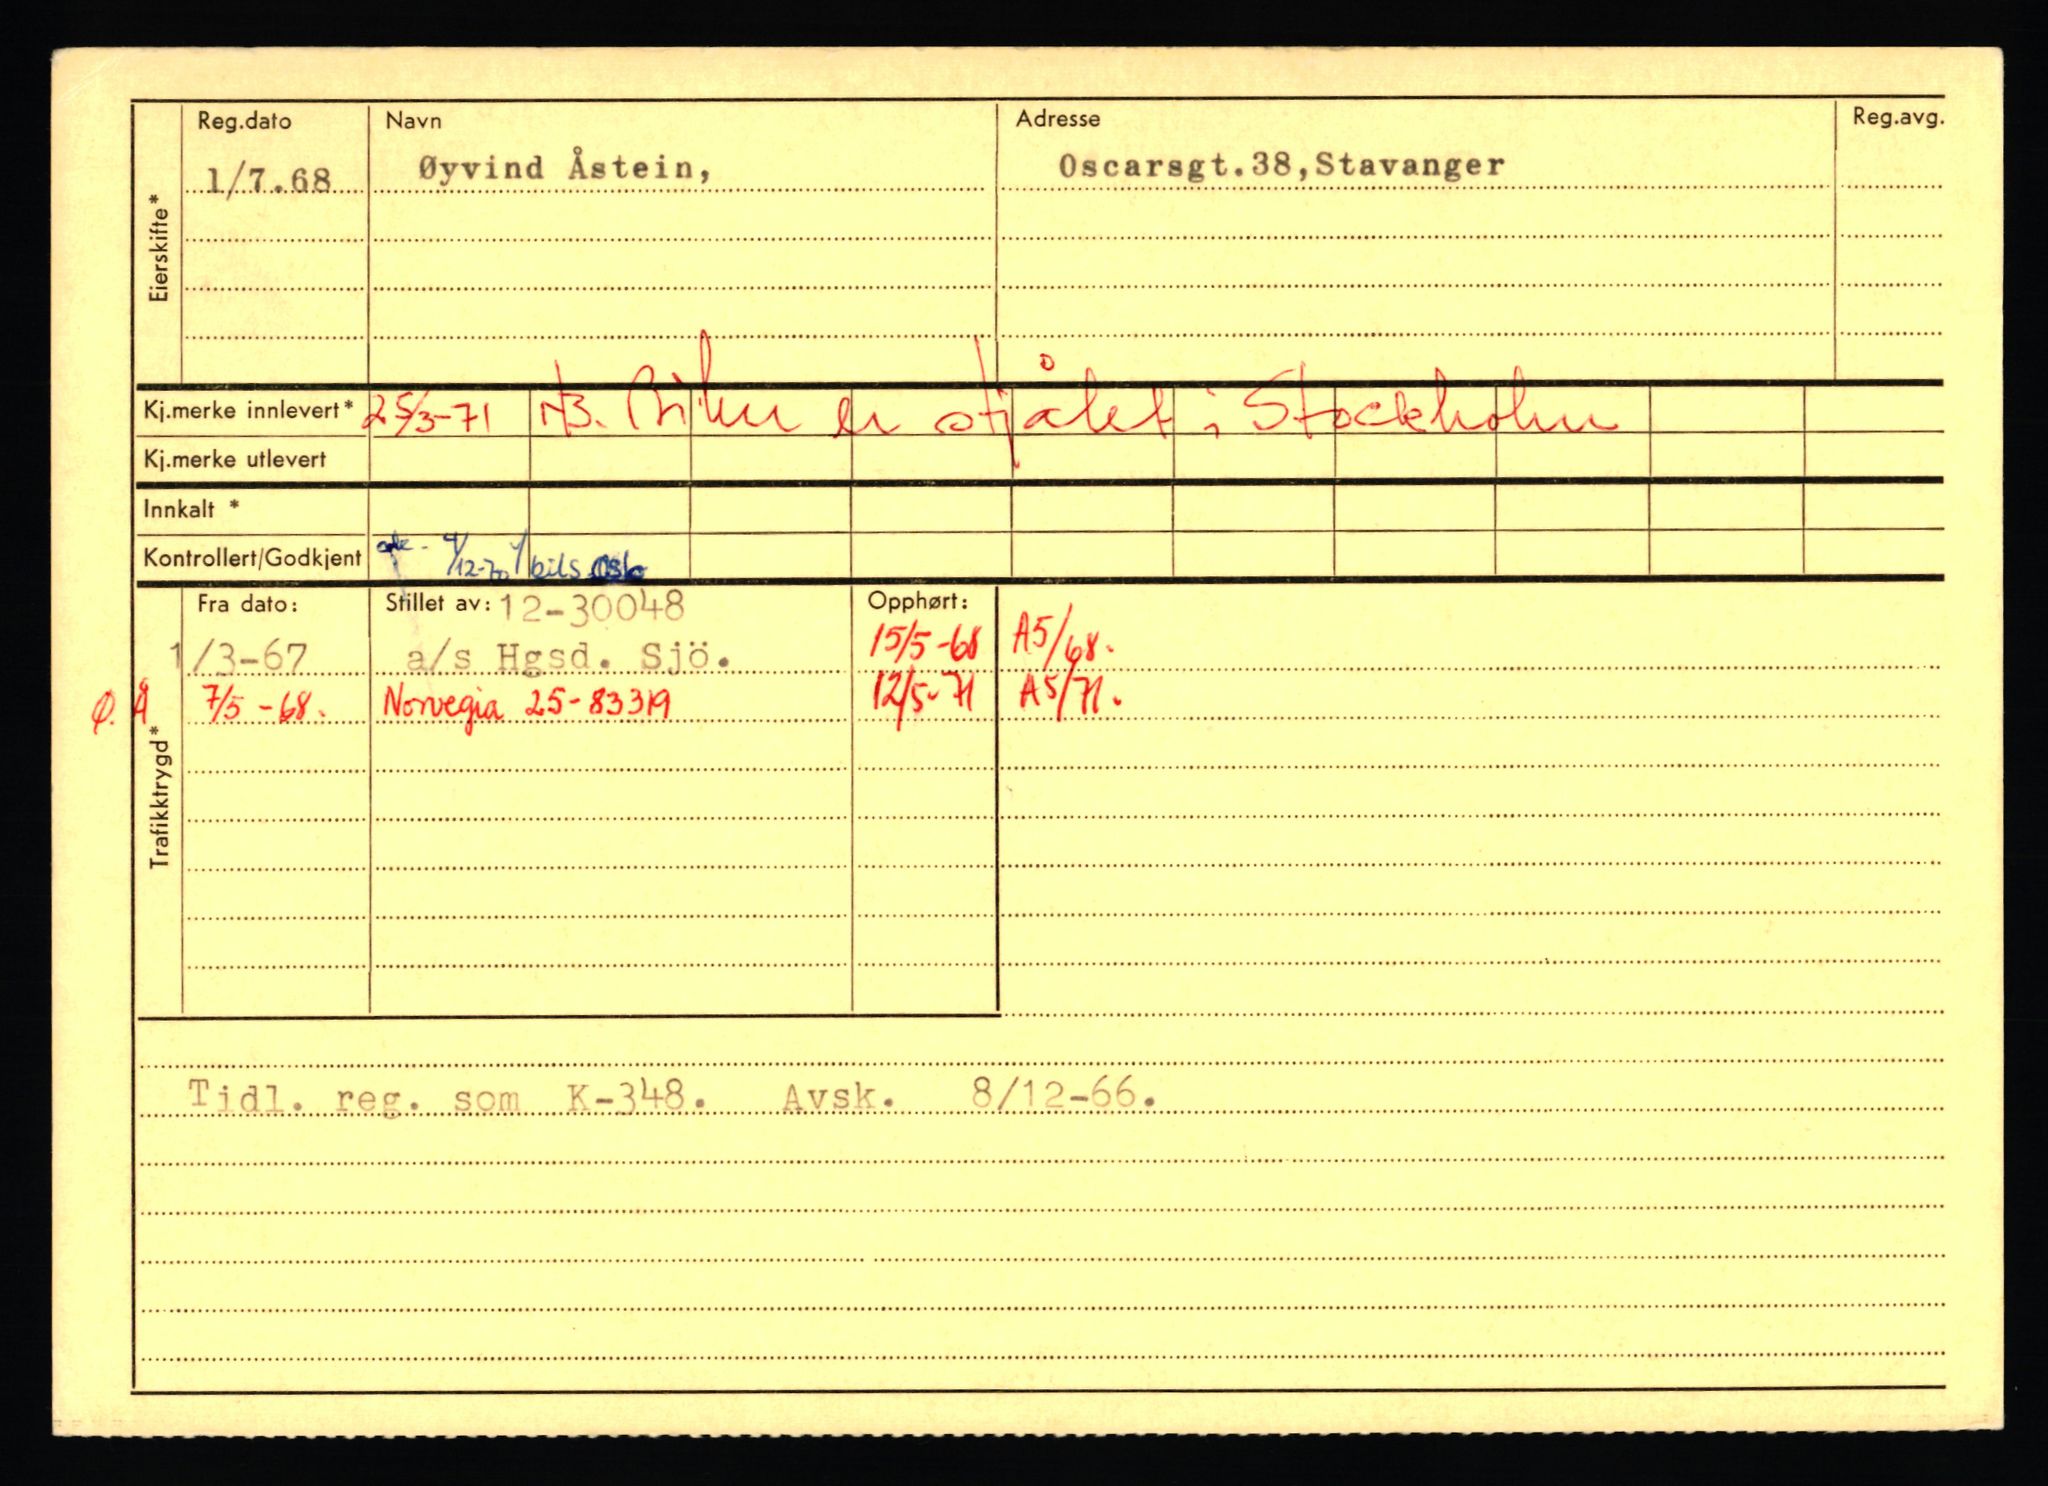 Reg.dato Navn Adresse Reg.avg.
1/7.68 Øyvind Åstein, Oscarsgt.38,Stavanger
Eierskifte*
Kj.merke innlevert* 25/3-71 NB. Bilen er stjålet i Stockholm
Kj.merke utlevert
Innkalt *
Kontrollert/Godkjent 4/12-70 v/bils Oslo
Fra dato: Stillet av: 12-30048 Opphørt:
1/3-67 a/s Hgsd. Sjö. 15/5-68 A5/68.
Ø.Å 7/5-68. Norvegia 25-83319 12/5-71 A5/71.
Trafikktrygd*
Tidl. reg. som K-348. Avsk. 8/12-66.